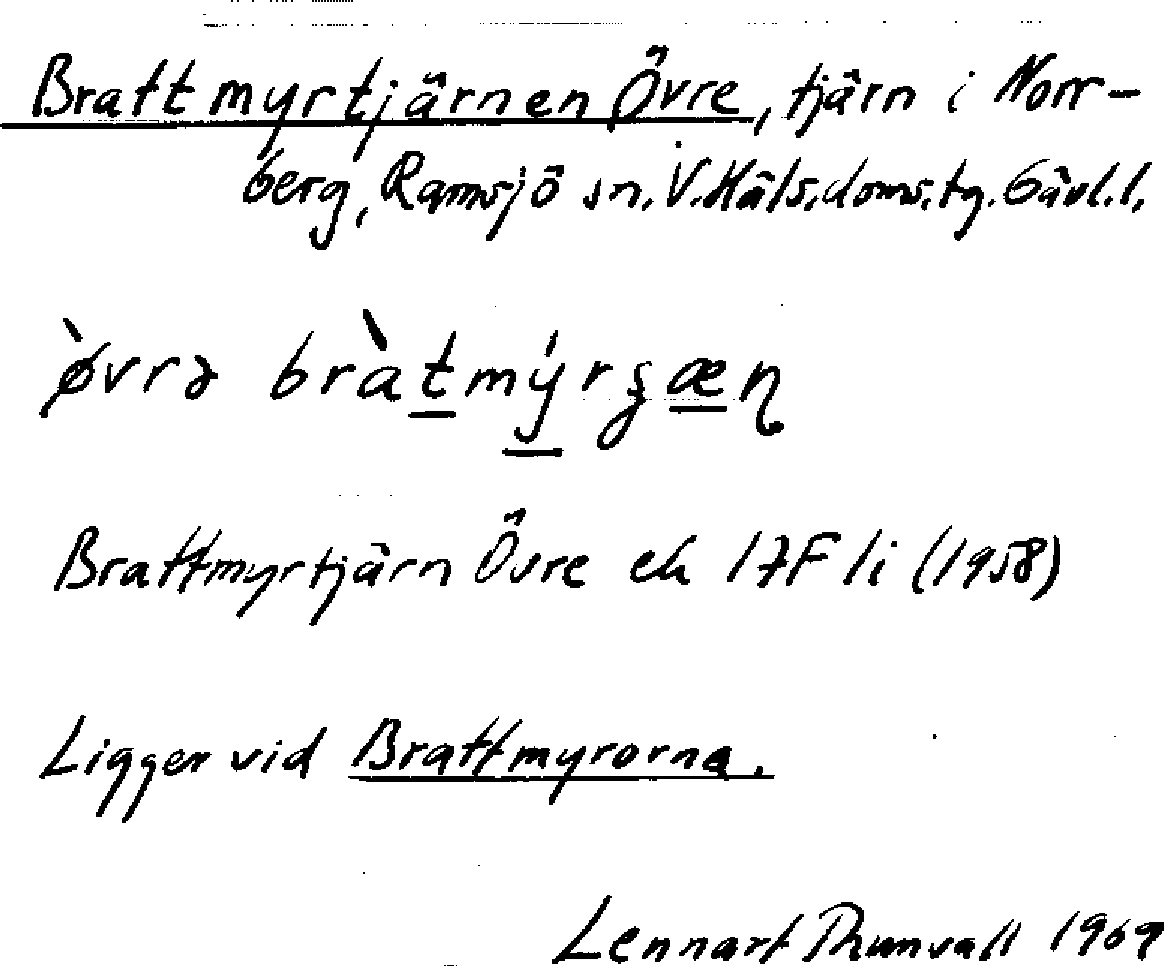 Brattmyrtjärnen Övre, tjärn i Norr-
berg, Ramsjö sn. V. Häls. doms. tg. Gävl. l.
øvrə bràtmýrʂæɳ
Brattmyrtjärn Övre ek 17F li (1958)
Ligger vid Brattmyrorna.
Lennart Thunvall 1969